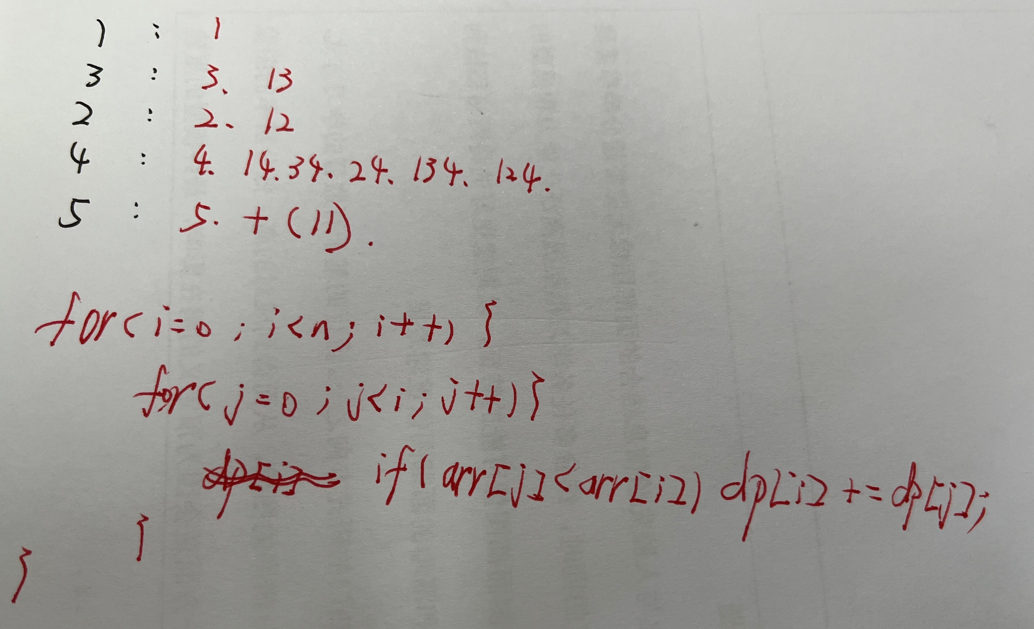 1 : 1
3 : 3、 13
2 : 2、 12
4 : 4. 14.34、24、134、124.
5 : 5. + (11).
for(i=0 ; i<n; i++) {
for( j=0 ; j<i; j++) {
if( arr[j]<arr[i]) dp[i] += dp[j];
}
}